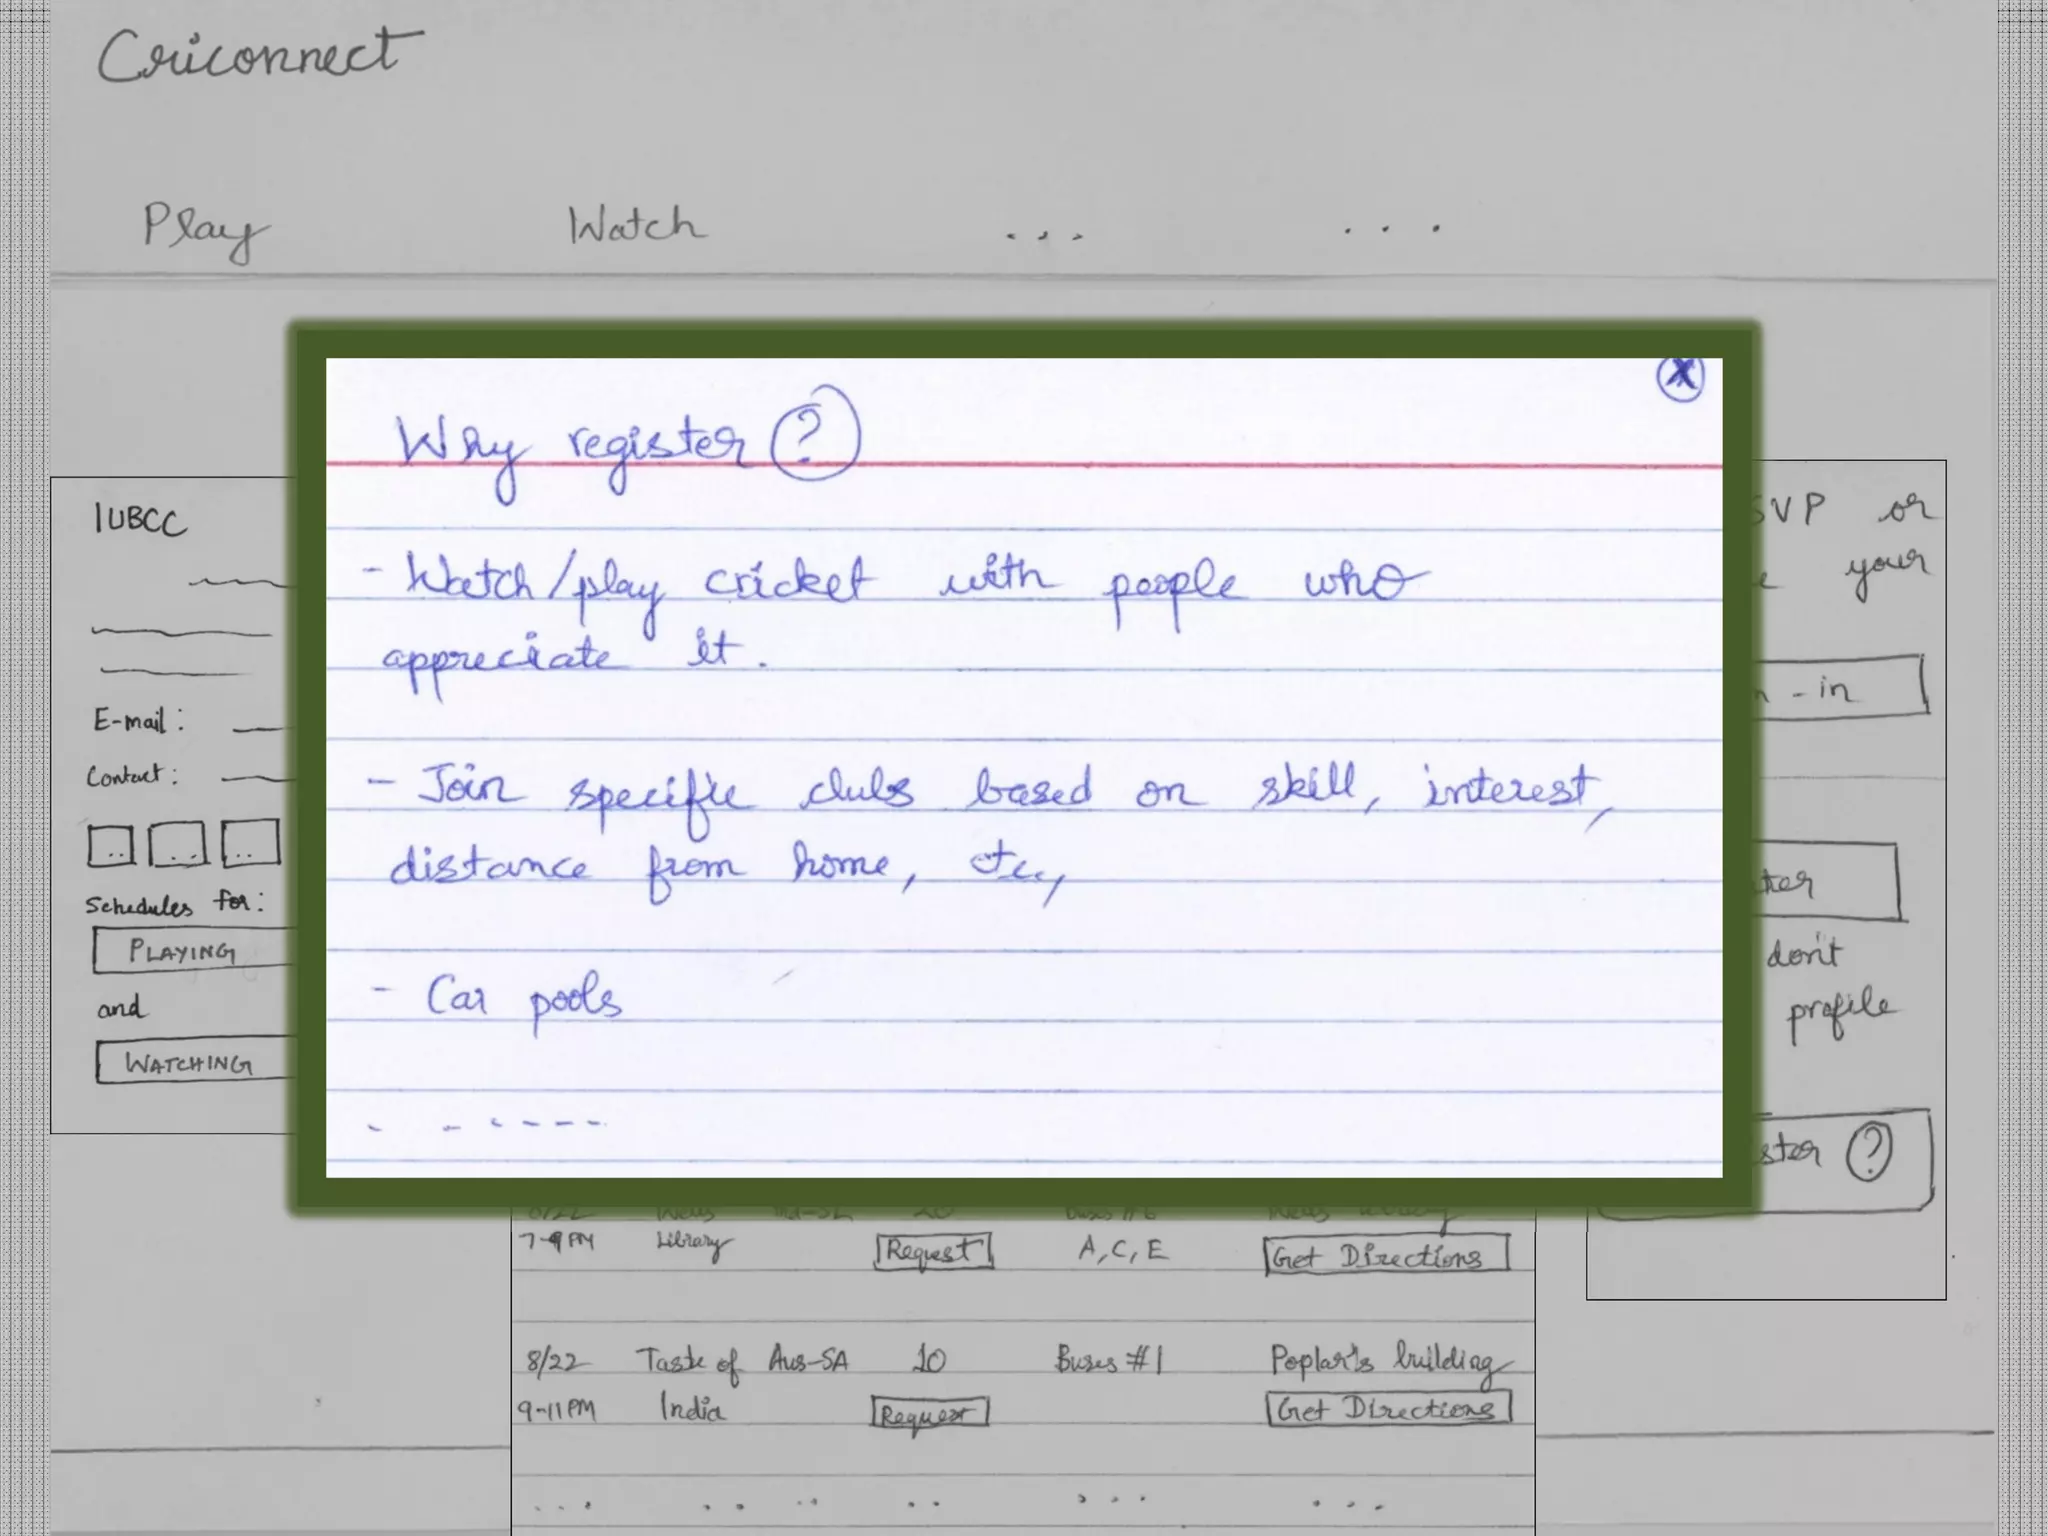 Criconnect
Play Watch ... ...
Why register ?
X
- Watch/play cricket with people who
appreciate it.
- Join specific clubs based on skill, interest,
distance from home, etc.,
- Car pools
IUBCC
E-mail:
Contact:
Schedules for:
PLAYING
and
WATCHING
SVP or
your
n-in
ter
don't
profile
ster ?
7-9PM Library Request A, C, E Get Directions
8/22 Taste of Aus-SA 10 Buses #1 Poplar's building
9-11PM India Request Get Directions